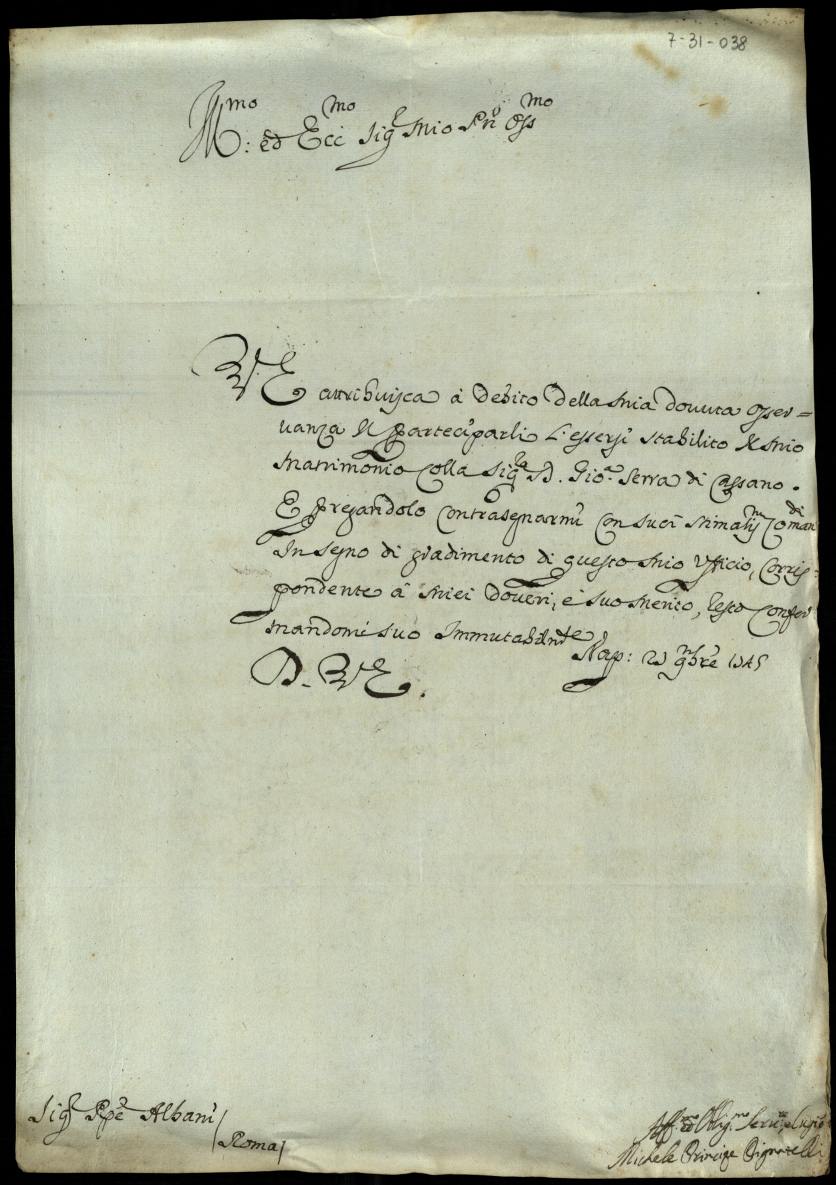 7-31-038
Ill.mo ed Ecc.mo Sig.r mio P̃rõ Oss.mo
V. E. attribuisca à debito della mia dovuta osser=
vanza il parteciparli l'essersi stabilito il mio
Matrimonio colla Sig.ra D. Gio.a Serra di Cassano.
E pregandolo contrasegnarmi con suoi stimatis.mi Coman.di
in segno di gradimento di questo mio Ufficio, corris=
pondente à miei doveri, e suo merito, resto confer
mandomi suo immutabilm.te
D. V. E.
Nap: 9bre 1745
Sig.r P̃pe Albani
Roma
Aff.mo Obblig.mo Ser.re
Michele Principe Pignatelli